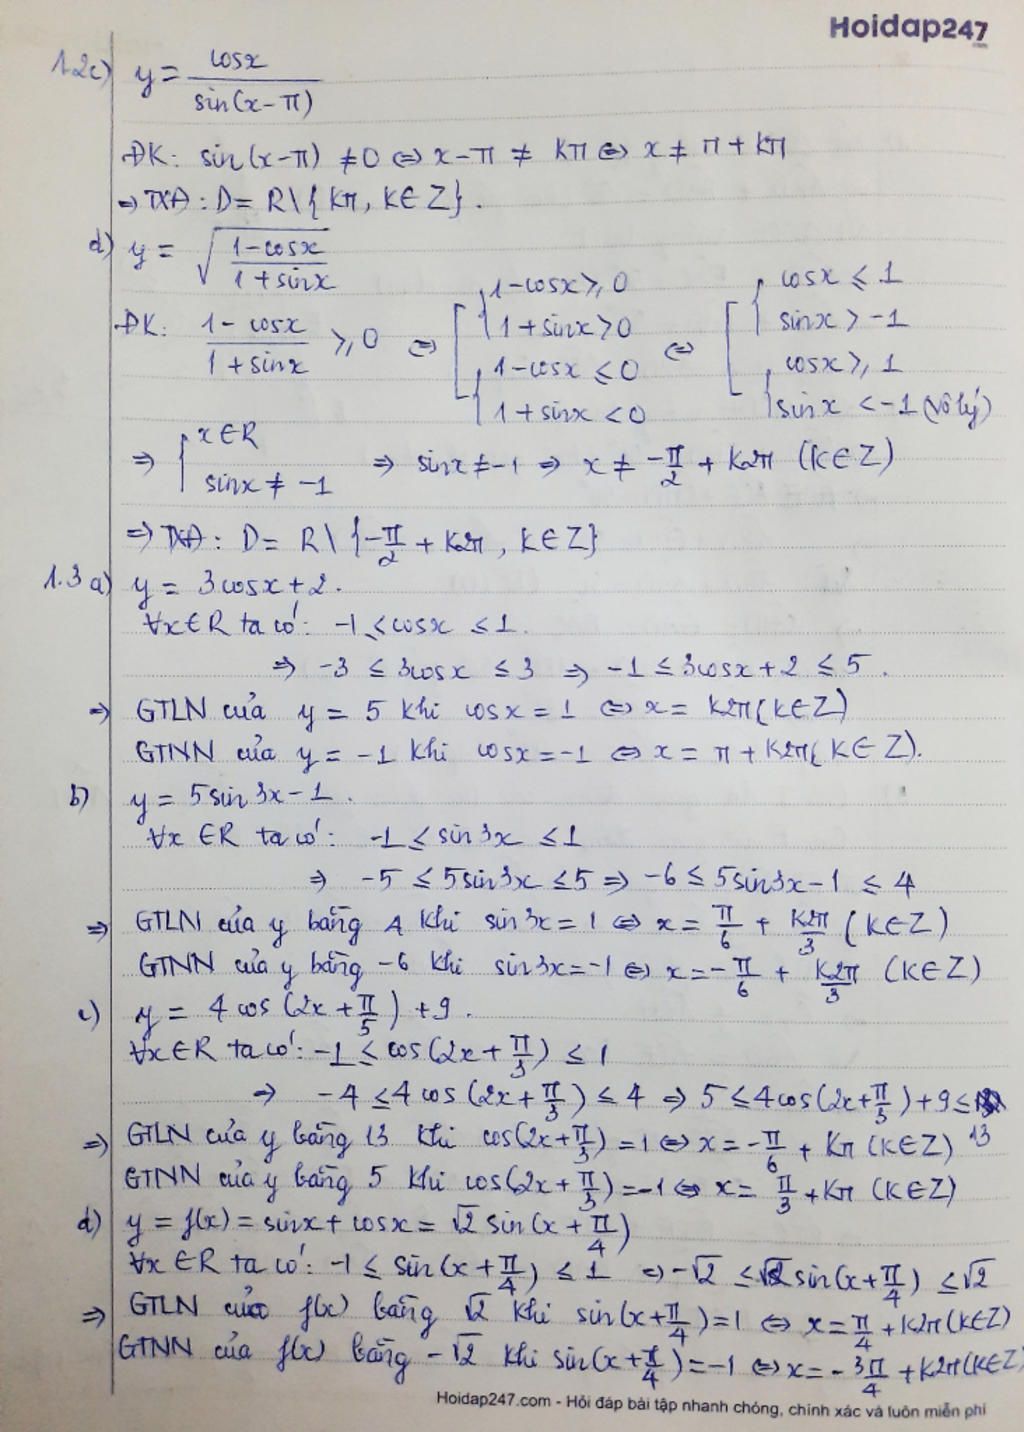 Hoidap247
.com
1.2c) y = cosx / sin(x-π)
ĐK: sin(x-π) ≠ 0 ⇔ x-π ≠ kπ ⇔ x ≠ π + kπ
⇒ TXĐ : D = R\{kπ, k∈Z}.
d) y = √((1-cosx)/(1+sinx))
ĐK: (1-cosx)/(1+sinx) ⩾ 0 ⇔ [ { 1-cosx ⩾ 0 ; 1+sinx > 0 } ; { 1-cosx ⩽ 0 ; 1+sinx < 0 } ⇔ [ { cosx ⩽ 1 ; sinx > -1 } ; { cosx ⩾ 1 ; sinx < -1 (vô lý) }
⇒ { x∈R ; sinx ≠ -1 ⇒ sinx ≠ -1 ⇒ x ≠ -π/2 + k2π (k∈Z)
⇒ TXĐ : D = R\{-π/2 + k2π, k∈Z}
1.3 a) y = 3cosx + 2.
∀x∈R ta có: -1 ≤ cosx ≤ 1.
⇒ -3 ≤ 3cosx ≤ 3 ⇒ -1 ≤ 3cosx + 2 ≤ 5.
⇒ GTLN của y = 5 khi cosx = 1 ⇔ x = k2π (k∈Z)
GTNN của y = -1 khi cosx = -1 ⇔ x = π + k2π (k∈Z).
b) y = 5sin3x - 1.
∀x∈R ta có: -1 ≤ sin3x ≤ 1
⇒ -5 ≤ 5sin3x ≤ 5 ⇒ -6 ≤ 5sin3x - 1 ≤ 4
⇒ GTLN của y bằng 4 khi sin3x = 1 ⇔ x = π/6 + k2π/3 (k∈Z)
GTNN của y bằng -6 khi sin3x = -1 ⇔ x = -π/6 + k2π/3 (k∈Z)
c) y = 4cos(2x + π/5) + 9.
∀x∈R ta có: -1 ≤ cos(2x + π/3) ≤ 1
⇒ -4 ≤ 4cos(2x + π/3) ≤ 4 ⇒ 5 ≤ 4cos(2x + π/3) + 9 ≤ 13
⇒ GTLN của y bằng 13 khi cos(2x + π/3) = 1 ⇔ x = -π/6 + kπ (k∈Z)
GTNN của y bằng 5 khi cos(2x + π/3) = -1 ⇔ x = π/3 + kπ (k∈Z)
d) y = f(x) = sinx + cosx = √2 sin(x + π/4)
∀x∈R ta có: -1 ≤ sin(x + π/4) ≤ 1 ⇒ -√2 ≤ √2 sin(x + π/4) ≤ √2
⇒ GTLN của f(x) bằng √2 khi sin(x + π/4) = 1 ⇔ x = π/4 + k2π (k∈Z)
GTNN của f(x) bằng -√2 khi sin(x + π/4) = -1 ⇔ x = -3π/4 + k2π (k∈Z)
Hoidap247.com - Hỏi đáp bài tập nhanh chóng, chính xác và luôn miễn phí